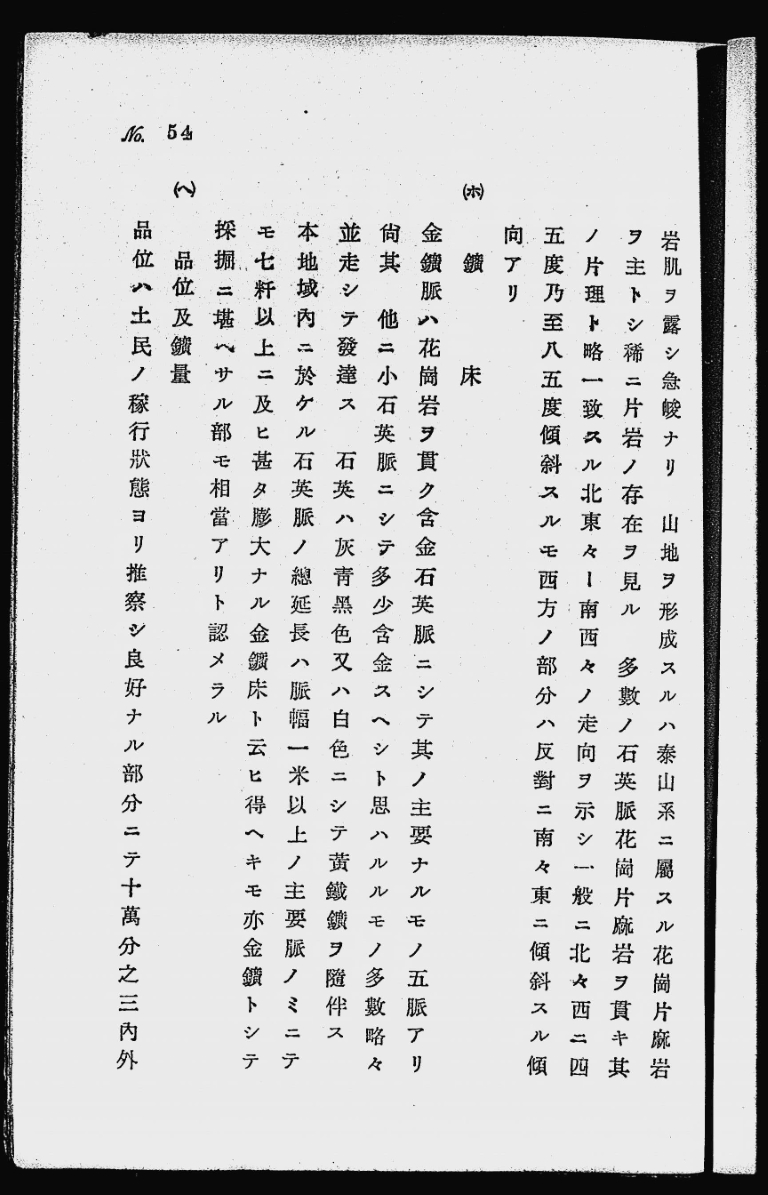 No. 54
岩肌ヲ露シ急峻ナリ　山地ヲ形成スルハ泰山系ニ屬スル花崗片麻岩
ヲ主トシ稀ニ片岩ノ存在ヲ見ル　多數ノ石英脈花崗片麻岩ヲ貫キ其
ノ片理ト略一致スル北東々ー南西々ノ走向ヲ示シ一般ニ北々西ニ四
五度乃至八五度傾斜スルモ西方ノ部分ハ反對ニ南々東ニ傾斜スル傾
向アリ
(ホ)　鑛　床
金鑛脈ハ花崗岩ヲ貫ク含金石英脈ニシテ其ノ主要ナルモノ五脈アリ
尙其　他ニ小石英脈ニシテ多少含金スヘシト思ハルルモノ多數略々
並走シテ發達ス　石英ハ灰靑黑色又ハ白色ニシテ黃鐵鑛ヲ隨伴ス
本地域內ニ於ケル石英脈ノ總延長ハ脈幅一米以上ノ主要脈ノミニテ
モ七粁以上ニ及ヒ甚タ膨大ナル金鑛床ト云ヒ得ヘキモ亦金鑛トシテ
採掘ニ堪ヘサル部モ相當アリト認メラル
(ヘ)　品位及鑛量
品位ハ土民ノ稼行狀態ヨリ推察シ良好ナル部分ニテ十萬分之三內外